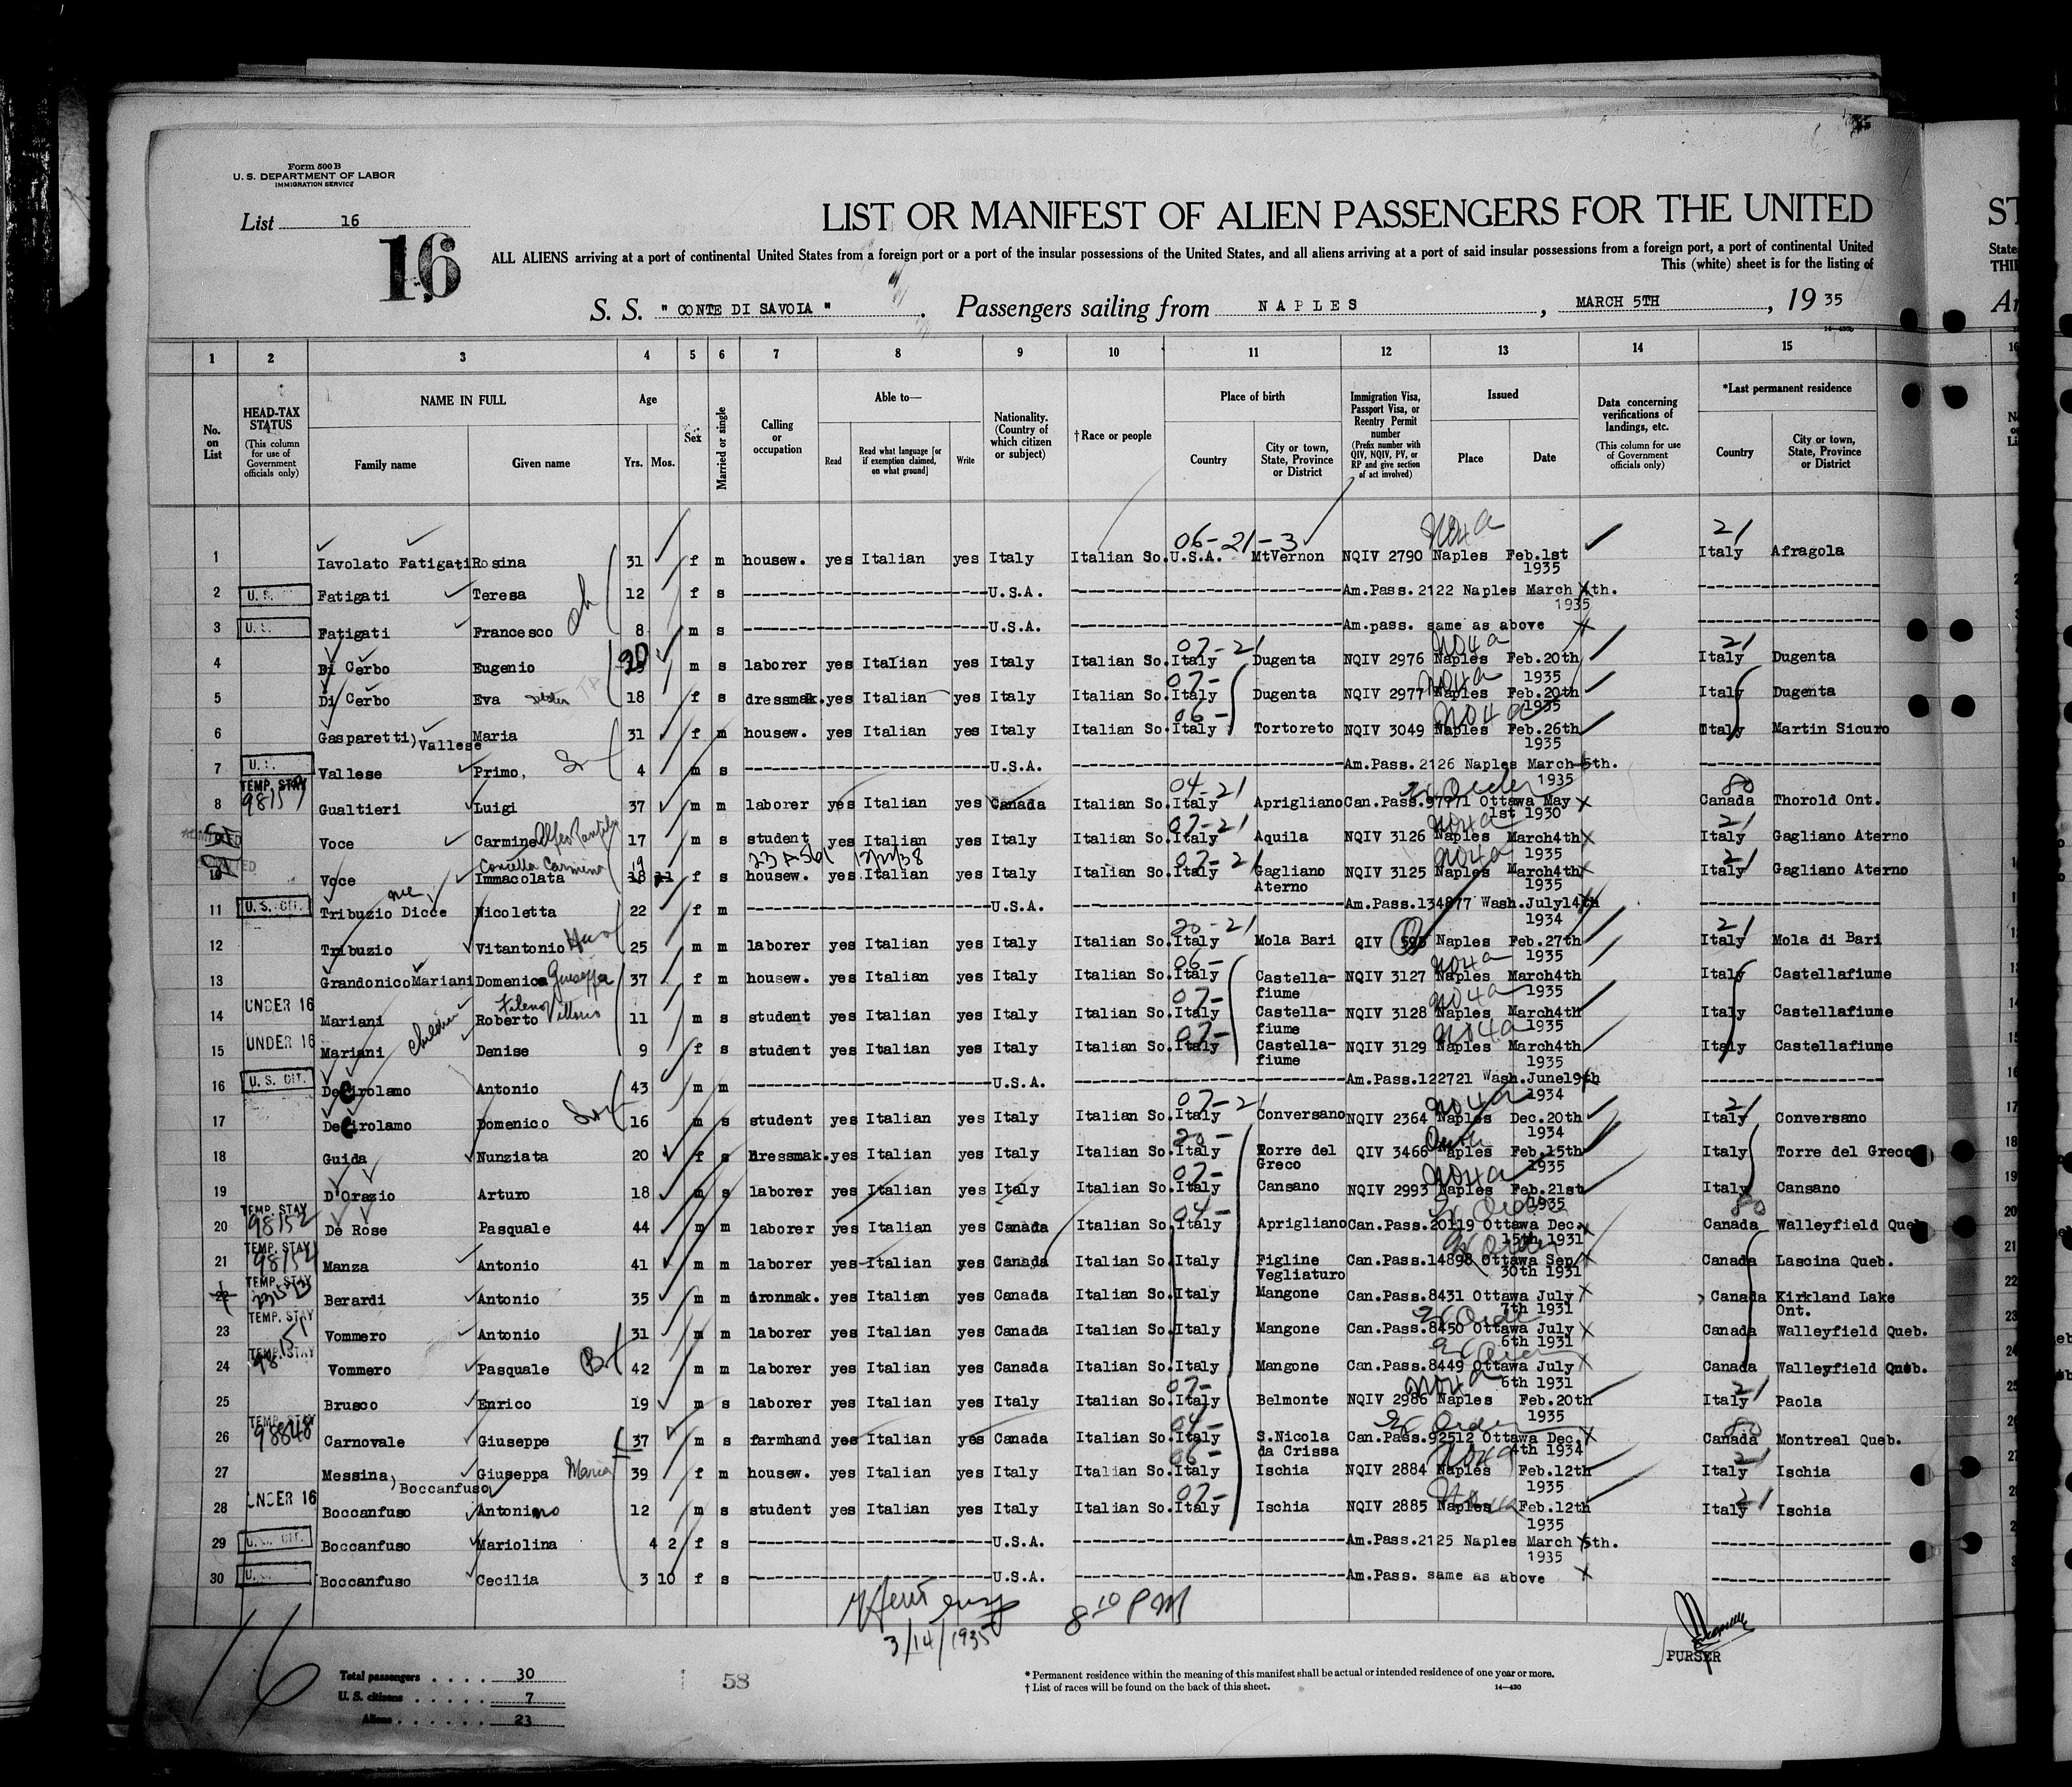 Form 500 B
U. S. DEPARTMENT OF LABOR
IMMIGRATION SERVICE
List 16
16
LIST OR MANIFEST OF ALIEN PASSENGERS FOR THE UNITED
ST
ALL ALIENS arriving at a port of continental United States from a foreign port or a port of the insular possessions of the United States, and all aliens arriving at a port of said insular possessions from a foreign port, a port of continental United
This (white) sheet is for the listing of
S. S. " CONTE DI SAVOIA ". Passengers sailing from NAPLES, MARCH 5TH, 19 35
1 2 3 4 5 6 7 8 9 10 11 12 13 14 15
No. on List
HEAD-TAX STATUS (This column for use of Government officials only)
NAME IN FULL
Family name Given name
Age
Yrs. Mos.
Sex
Married or single
Calling or occupation
Able to—
Read
Read what language [or if exemption claimed, on what ground]
Write
Nationality. (Country of which citizen or subject)
† Race or people
Place of birth
Country
City or town, State, Province or District
Immigration Visa, Passport Visa, or Reentry Permit number (Prefix number with QIV, NQIV, PV, or RP and give section of act involved)
Issued
Place Date
Data concerning verifications of landings, etc. (This column for use of Government officials only)
*Last permanent residence
Country
City or town, State, Province or District
1 Iavolato Fatigati Rosina 31 f m housew. yes Italian yes Italy Italian So. U.S.A. MtVernon NQIV 2790 Naples Feb.1st 1935 Italy Afragola
06-21-3 21
2 Fatigati Teresa 12 f s U.S.A. Am.Pass.2122 Naples March th. 1935
3 Fatigati Francesco 8 m s U.S.A. Am.pass. same as above
4 Di Cerbo Eugenio 20 m s laborer yes Italian yes Italy Italian So. Italy Dugenta NQIV 2976 Naples Feb.20th 1935 Italy Dugenta
07-21 21
5 Di Cerbo Eva sister 18 f s dressmak. yes Italian yes Italy Italian So. Italy Dugenta NQIV 2977 Naples Feb.20th 1935 Italy Dugenta
07-
6 Gasparetti) Vallese Maria 31 f m housew. yes Italian yes Italy Italian So. Italy Tortoreto NQIV 3049 Naples Feb.26th 1935 Italy Martin Sicuro
06-
7 Vallese Primo, 4 m s U.S.A. Am.Pass.2126 Naples March 5th. 1935
TEMP. STAY
8 Gualtieri Luigi 37 m m laborer yes Italian yes Canada Italian So. Italy Aprigliano Can.Pass.97771 Ottawa May 1st 1930 Canada Thorold Ont.
04-21 80
Voce Carmine 17 m s student yes Italian yes Italy Italian So. Italy Aquila NQIV 3126 Naples March4th 1935 Italy Gagliano Aterno
07-21 21
10 Voce Immacolata 18 11 f s housew. yes Italian yes Italy Italian So. Italy Gagliano Aterno NQIV 3125 Naples March4th 1935 Italy Gagliano Aterno
19 07-21 21
11 U. S. CIT. Tribuzio Dicce Nicoletta 22 f m U.S.A. Am.Pass.134877 Wash.July14th 1934
12 Tribuzio Vitantonio 25 m m laborer yes Italian yes Italy Italian So. Italy Mola Bari QIV 595 Naples Feb.27th 1935 Italy Mola di Bari
20-21 21
13 Grandonico Mariani Domenica Giuseppa 37 f m housew. yes Italian yes Italy Italian So. Italy Castellafiume NQIV 3127 Naples March4th 1935 Italy Castellafiume
06-
14 UNDER 16 Mariani Roberto 11 m s student yes Italian yes Italy Italian So. Italy Castellafiume NQIV 3128 Naples March4th 1935 Italy Castellafiume
children 07-
15 UNDER 16 Mariani Denise 9 f s student yes Italian yes Italy Italian So. Italy Castellafiume NQIV 3129 Naples March4th 1935 Italy Castellafiume
07-
16 U. S. CIT. DeGirolamo Antonio 43 m m U.S.A. Am.Pass.122721 Wash.June19th 1934
17 DeGirolamo Domenico 16 m s student yes Italian yes Italy Italian So. Italy Conversano NQIV 2364 Naples Dec.20th 1934 Italy Conversano
07-21 21
18 Guida Nunziata 20 f s dressmak. yes Italian yes Italy Italian So. Italy Torre del Greco QIV 3466 Naples Feb.15th 1935 Italy Torre del Greco
20-
19 D'Orazio Arturo 18 m s laborer yes Italian yes Italy Italian So. Italy Cansano NQIV 2993 Naples Feb.21st 1935 Italy Cansano
07-
20 TEMP. STAY 98152 De Rose Pasquale 44 m m laborer yes Italian yes Canada Italian So. Italy Aprigliano Can.Pass.20119 Ottawa Dec. 15th 1931 Canada Walleyfield Queb.
04- 80
21 TEMP. STAY Manza Antonio 41 m m laborer yes Italian yes Canada Italian So. Italy Figline Vegliaturo Can.Pass.14898 Ottawa Sep. 30th 1931 Canada Lasoina Queb.
22 TEMP. STAY Berardi Antonio 35 m m ironmak. yes Italian yes Canada Italian So. Italy Mangone Can.Pass.8431 Ottawa July 7th 1931 Canada Kirkland Lake Ont.
23 TEMP. STAY Vommero Antonio 31 m m laborer yes Italian yes Canada Italian So. Italy Mangone Can.Pass.8450 Ottawa July 6th 1931 Canada Walleyfield Queb.
24 TEMP. STAY Vommero Pasquale 42 m m laborer yes Italian yes Canada Italian So. Italy Mangone Can.Pass.8449 Ottawa July 6th 1931 Canada Walleyfield Queb.
25 Brusco Enrico 19 m s laborer yes Italian yes Italy Italian So. Italy Belmonte NQIV 2986 Naples Feb.20th 1935 Italy Paola
07- 21
26 TEMP. STAY 98848 Carnovale Giuseppe 37 m s farmhand yes Italian yes Canada Italian So. Italy S.Nicola da Crissa Can.Pass.92512 Ottawa Dec. 4th 1934 Canada Montreal Queb.
04- 80
27 Messina) Boccanfuso Giuseppa Maria 39 f m housew. yes Italian yes Italy Italian So. Italy Ischia NQIV 2884 Naples Feb.12th 1935 Italy Ischia
06- 21
28 UNDER 16 Boccanfuso Antonino 12 m s student yes Italian yes Italy Italian So. Italy Ischia NQIV 2885 Naples Feb.12th 1935 Italy Ischia
07- 21
29 Boccanfuso Mariolina 4 2 f s U.S.A. Am.Pass.2125 Naples March 5th. 1935
30 Boccanfuso Cecilia 3 10 f s U.S.A. Am.Pass. same as above
3/14/1935
8 10 PM
PURSER
16
Total passengers .... 30
U. S. citizens ..... 7
Aliens ...... 23
58
* Permanent residence within the meaning of this manifest shall be actual or intended residence of one year or more.
† List of races will be found on the back of this sheet.
14—430